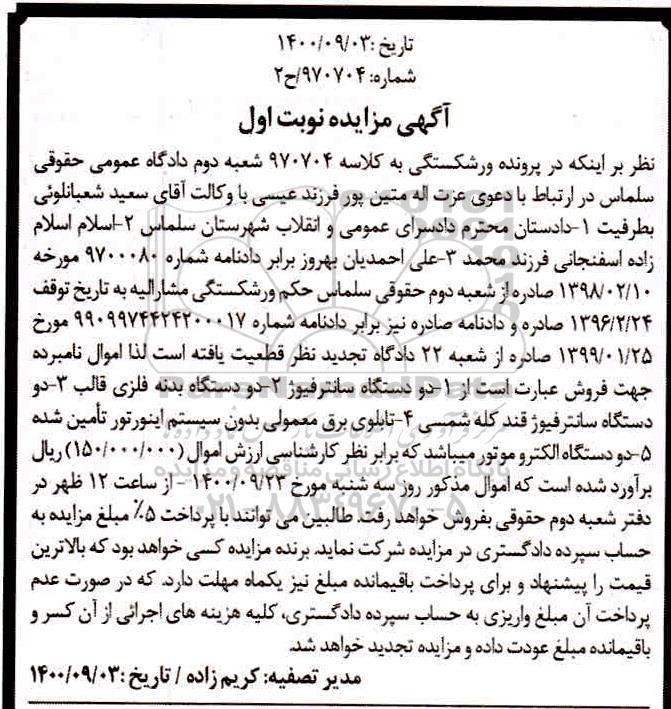 تاریخ :۱۴۰۰/۰۹/۰۳
شماره: ۹۷۰۷۰۴/ح۲
آگهی مزایده نوبت اول
نظر بر اینکه در پرونده ورشکستگی به کلاسه ۹۷۰۷۰۴ شعبه دوم دادگاه عمومی حقوقی
سلماس در ارتباط با دعوی عزت اله متین پور فرزند عیسی با وکالت آقای سعید شعبانلوئی
بطرفیت ۱-دادستان محترم دادسرای عمومی و انقلاب شهرستان سلماس ۲-اسلام اسلام
زاده اسفنجانی فرزند محمد ۳-علی احمدیان بهروز برابر دادنامه شماره ۹۷۰۰۰۸۰ مورخه
۱۳۹۸/۰۲/۱۰ صادره از شعبه دوم حقوقی سلماس حکم ورشکستگی مشارالیه به تاریخ توقف
۱۳۹۶/۲/۲۴ صادره و دادنامه صادره نیز برابر دادنامه شماره ۹۹۰۹۹۷۴۴۲۴۲۰۰۰۱۷ مورخ
۱۳۹۹/۰۱/۲۵ صادره از شعبه ۲۲ دادگاه تجدید نظر قطعیت یافته است لذا اموال نامبرده
جهت فروش عبارت است از ۱-دو دستگاه سانترفیوژ ۲-دو دستگاه بدنه فلزی قالب ۳-دو
دستگاه سانترفیوژ قند کله شمسی ۴-تابلوی برق معمولی بدون سیستم اینورتور تأمین شده
۵-دو دستگاه الکترو موتور میباشد که برابر نظر کارشناسی ارزش اموال (۱۵۰/۰۰۰/۰۰۰) ریال
برآورد شده است که اموال مذکور روز سه شنبه مورخ ۱۴۰۰/۰۹/۲۳ - از ساعت ۱۲ ظهر در
دفتر شعبه دوم حقوقی بفروش خواهد رفت. طالبین می توانند با پرداخت ۵٪ مبلغ مزایده به
حساب سپرده دادگستری در مزایده شرکت نماید. برنده مزایده کسی خواهد بود که بالاترین
قیمت را پیشنهاد و برای پرداخت باقیمانده مبلغ نیز یکماه مهلت دارد. که در صورت عدم
پرداخت آن مبلغ واریزی به حساب سپرده دادگستری، کلیه هزینه های اجرائی از آن کسر و
باقیمانده مبلغ عودت داده و مزایده تجدید خواهد شد.
مدیر تصفیه: کریم زاده / تاریخ :۱۴۰۰/۰۹/۰۳
ParsNamadData
پایگاه اطلاع رسانی مناقصه و مزایده
۰۲۱-۸۸۳۴۹۶۷۰-۵